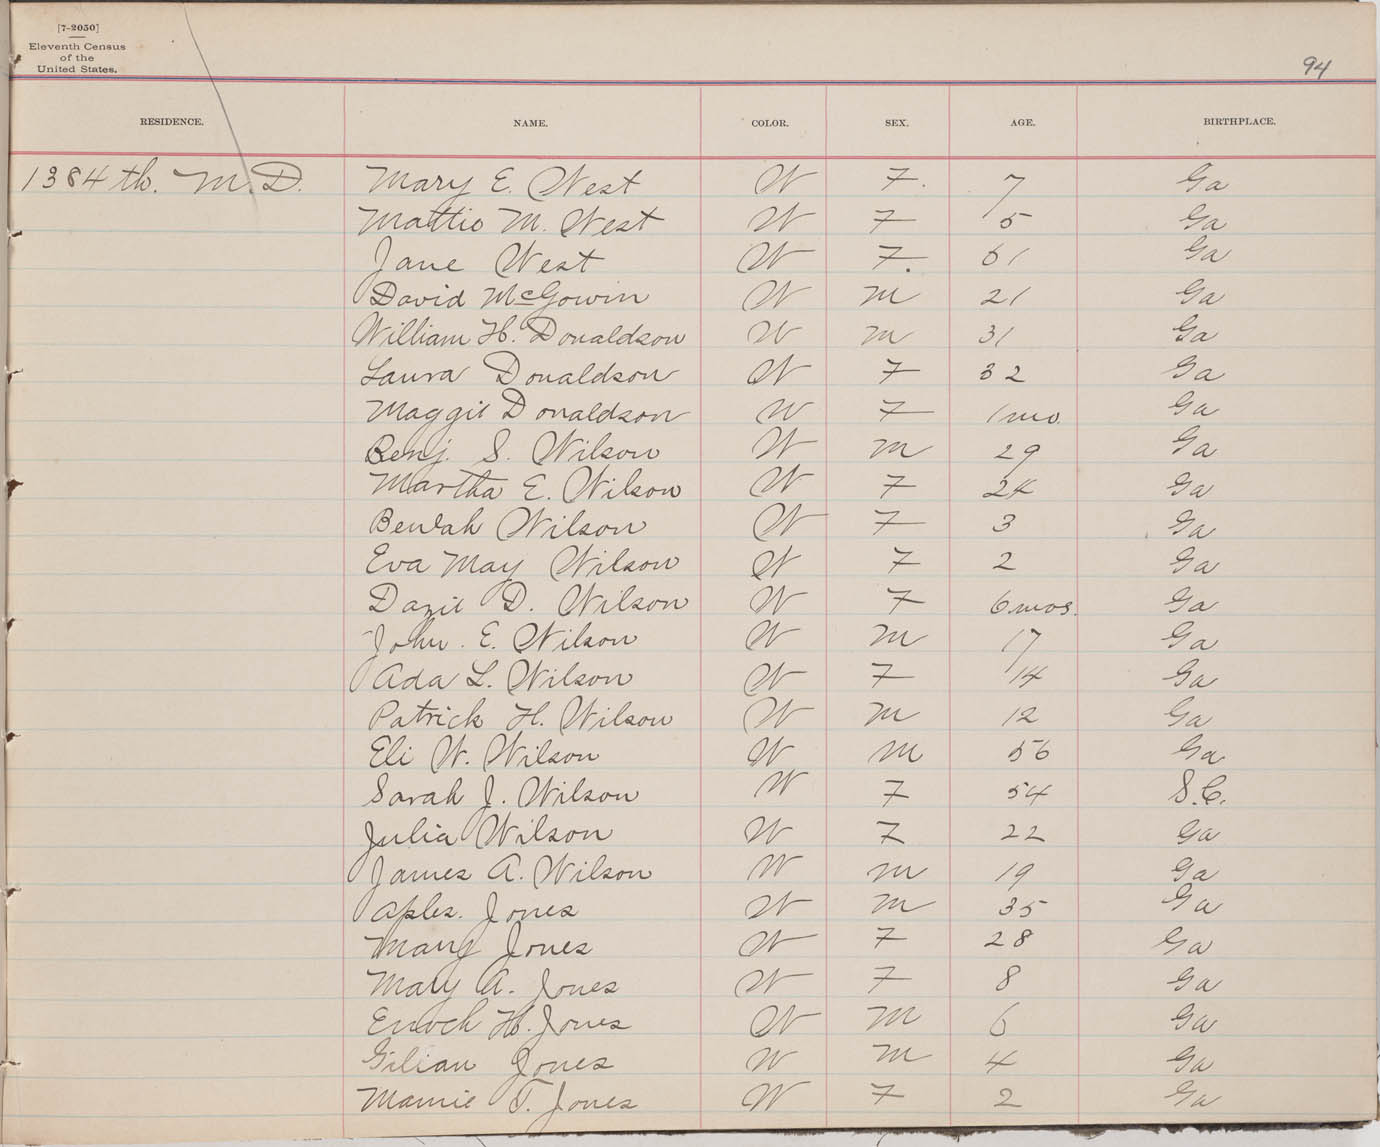 [7-2050]
Eleventh Census
of the
United States.
94
RESIDENCE. NAME. COLOR. SEX. AGE. BIRTHPLACE.
1384th. M.D. Mary E. West W F. 7 Ga
Mattie M. West W F 5 Ga
Jane West W F. 61 Ga
David McGowin W M 21 Ga
William H. Donaldson W M 31 Ga
Laura Donaldson W F 32 Ga
Maggie Donaldson W F 1mo. Ga
Benj. S. Wilson W M 29 Ga
Martha E. Wilson W F 24 Ga
Beulah Wilson W F 3 Ga
Eva May Wilson W F 2 Ga
Dazie D. Wilson W F 6mos. Ga
John. E. Wilson W M 17 Ga
Ada L. Wilson W F 14 Ga
Patrick H. Wilson W M 12 Ga
Eli W. Wilson W M 56 Ga
Sarah J. Wilson W F 54 S.C.
Julia Wilson W F 22 Ga
James A. Wilson W M 19 Ga
Jones W M 35 Ga
Mary Jones W F 28 Ga
Mary A. Jones W F 8 Ga
Enoch H. Jones W M 6 Ga
Gilian Jones W M 4 Ga
Mamie T. Jones W F 2 Ga